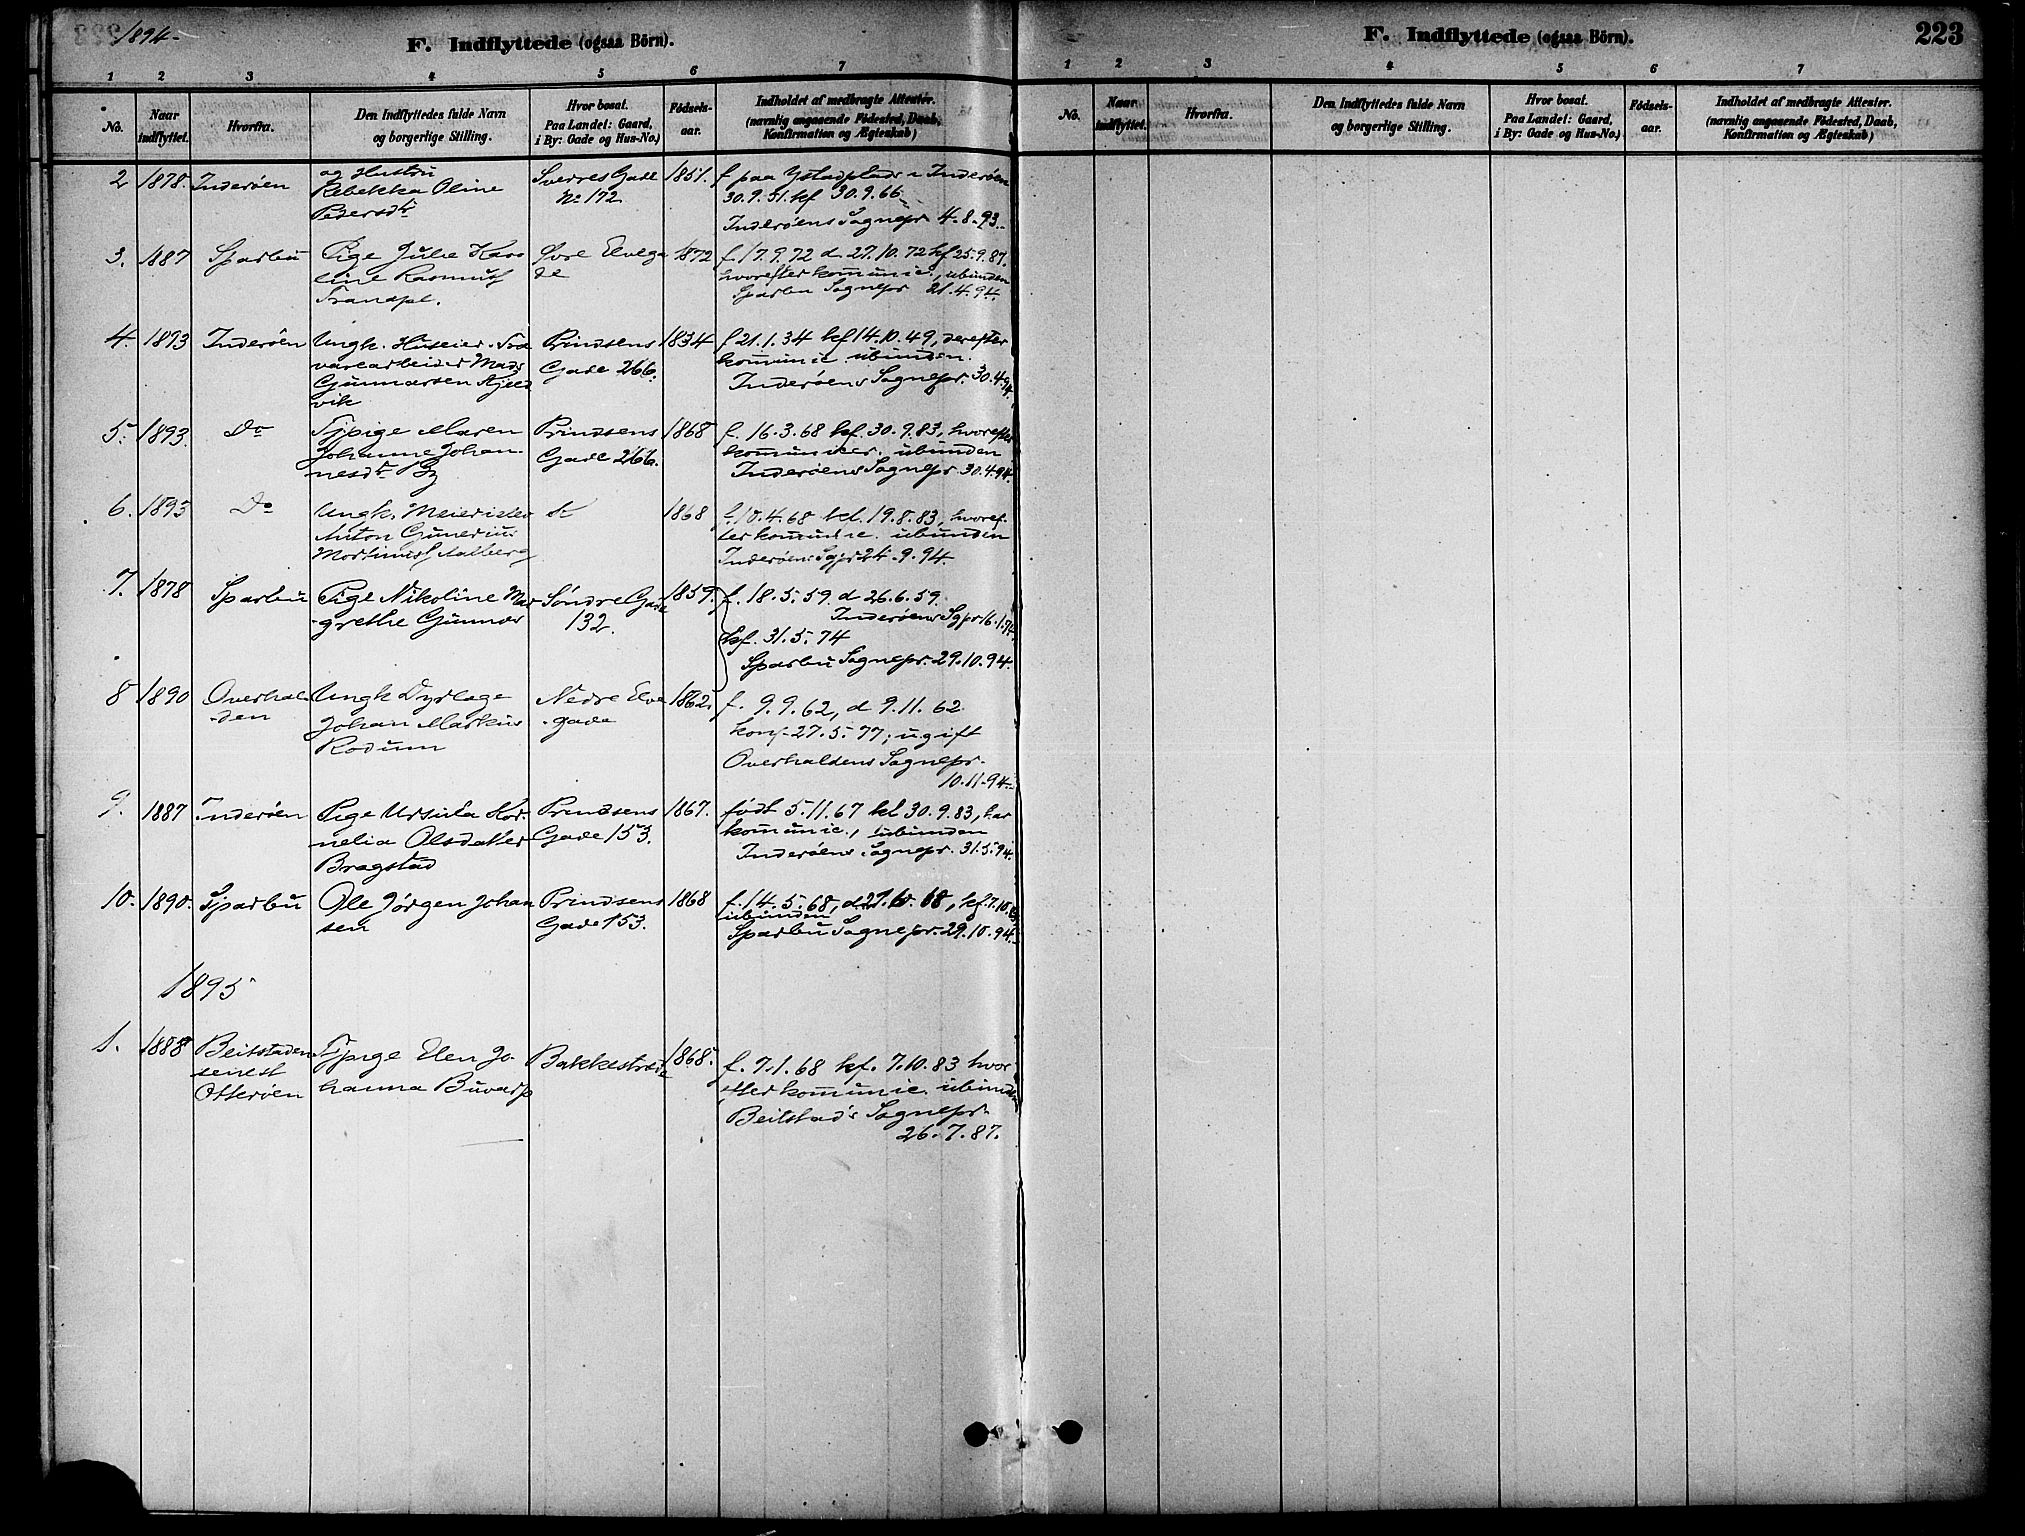 1894-
F. Indflyttede (ogsaa Börn).
1 2 3 4 5 6 7
No.
Naar indflyttet.
Hvorfra.
Den Indflyttedes fulde Navn
og borgerlige Stilling.
Hvor bosat.
Paa Landet: Gaard,
i By: Gade og Hus-No.)
Födsels-
aar.
Indholdet af medbragte Attester.
(navnlig angaaende Födested, Daab,
Konfirmation og Ægteskab)
2 1878. Inderøen
og Hustru
Rebekka Oline
Pedersdtr
Sverres Gade
No 172
1851.
f paa Ystadplads i Inderøen
30.9.51. kf 30.9.66
Inderøens Sognepr. 4.8.93.
3. 1887 Sparbu
Pige Julie Karo
line Rasmusd
Trandpl.
Øvre Elvega
de
1872
f. 17.9.72 d. 27.10.72 kf 25.9.87.
hvorefter komunic., ubunden
Sparbu Sognepr 21.4.94.
4. 1893 Inderøen
Ungk. Huseier
varearbeider Mads
Gunnarsen Kjeld
vik
Prindsens
Gade 266.
1834
f 21.1.34 kf 14.10.49, derefter
komunic ubunden.
Inderøens Sognepr. 30.4.94.
5. 1893. Do
Tjpige Maren
Johanne Johan-
nesdtr By
Prindsens
Gade 266.
1868
f. 16.3.68 kf. 30.9.83, hvorefter
komunicer., ubunden
Inderøens Sognepr 30.4.94.
6. 1893 Do
Ungk. Meierielev
Anton Gunerius
Mortinus Aalberg
1868
f. 10.4.68 kf. 19.8.83, hvoref-
ter komunic. ubunden
Inderøens Sgpr 24.9.94.
7. 1878 Sparbu
Pige Nikoline Mar
-grethe Gunnar
Søndre Gade
132.
1859.
f. 18.5.59 d 26.6.59.
Inderøens Sgpr 16.1.74.
kf. 31.5.74
Sparbu Sognepr. 29.10.94.
8 1890 Overhal
-den
Ungk Dyrlæge
Johan Markus
Rodum
Nedre Elve
-gade
1862.
f. 9.9.62, d 9.11.62
konf. 27.5.77; ugift
Overhaldens Sognepr.
10.11.94.
9. 1887 Inderøen
Pige Ursula Kor
nelia Olsdatter
Bragstad
Prindsens
Gade 153.
1867.
født 5.11.67 kf 30.9.83, har
komunic., ubunden
Inderøens Sognepr. 31.5.94.
10. 1890. Sparbu
Ole Jørgen Johan
sen
Prindsens
Gade 153.
1868
f. 14.5.68, d 21.6.68, kf 7.10.83
ubunden
Sparbu Sognepr. 29.10.94.
1895
1. 1888 Beitstaden
senest
Otterøen
Tjpige Elen Jo-
hanna Buvarp
Bakkestræde
1868.
f. 7.1.68 kf. 7.10.83 hvor
efter komunic. ubunden
Beitstad's Sognepr.
26.7.87.
F. Indflyttede (ogsaa Börn).
223
1 2 3 4 5 6 7
No.
Naar indflyttet.
Hvorfra.
Den Indflyttedes fulde Navn
og borgerlige Stilling.
Hvor bosat.
Paa Landet: Gaard,
i By: Gade og Hus-No.)
Födsels-
aar.
Indholdet af medbragte Attester.
(navnlig angaaende Födested, Daab,
Konfirmation og Ægteskab)